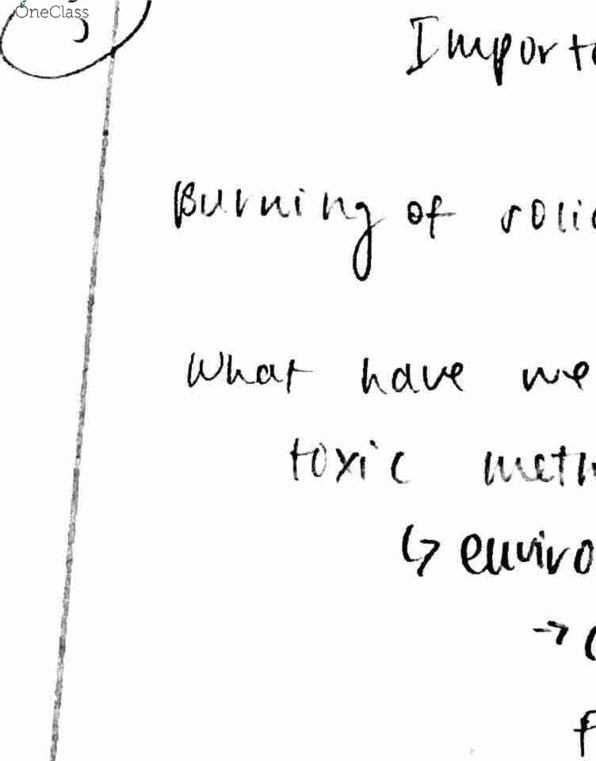 OneClass
Import
Burning of soli
What have we
toxic meth
↳ enviro
→ c
f